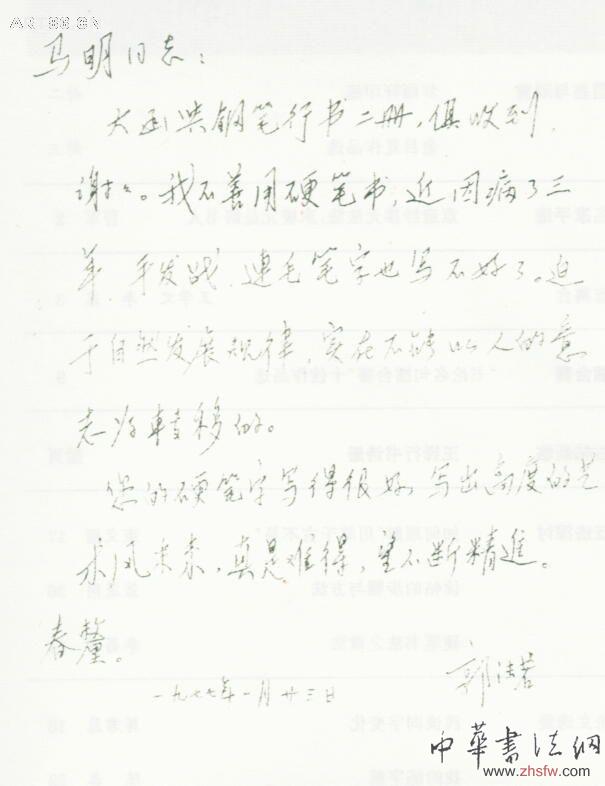 马明同志：
大函与钢笔行书二册，俱收到，
谢谢。我不善用硬笔书，近因病了三
年，手发战，连毛笔字也写不好了。迫
于自然发展规律，实在不能以人的意
志为转移的。
您的硬笔字写得很好，写出高度的艺
术风采来，真是难得，望不断精進。
春釐。
郭沫若
一九七七年一月廿三日
中華書法网
www.zhsfw.com